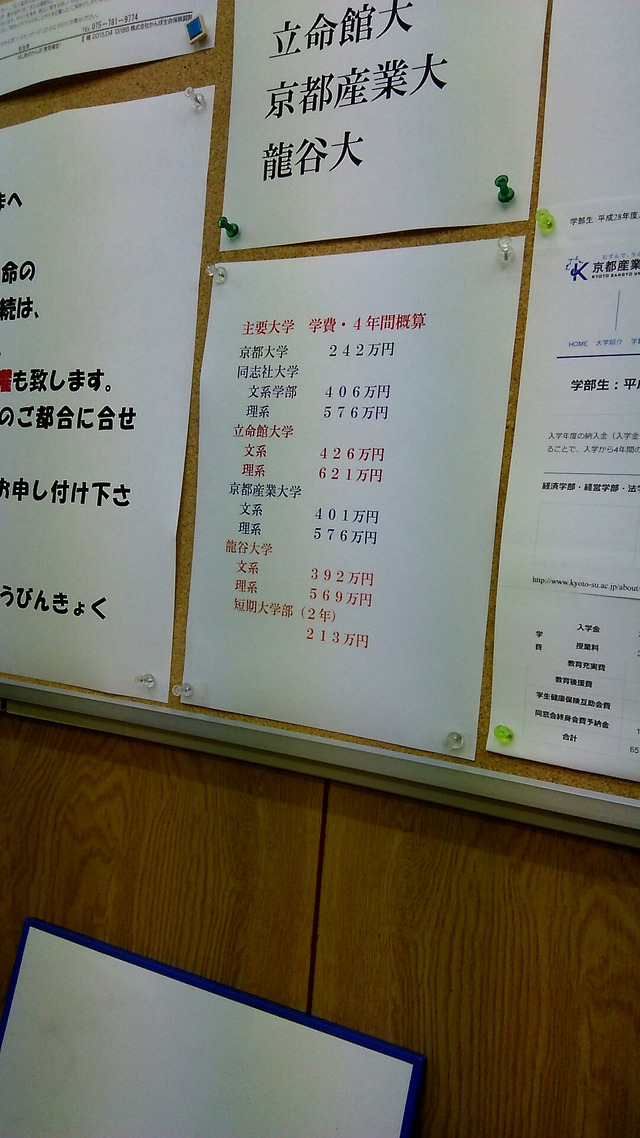 TEL 075-781-9774
立命館大
京都産業大
龍谷大
命の
続は、
も致します。
のご都合に合せ
お申し付け下さ
うびんきょく
主要大学　学費・４年間概算
京都大学　２４２万円
同志社大学
文系学部　４０６万円
理系　５７６万円
立命館大学
文系　４２６万円
理系　６２１万円
京都産業大学
文系　４０１万円
理系　５７６万円
龍谷大学
文系　３９２万円
理系　５６９万円
短期大学部（２年）
２１３万円
学部生 平成28年度
京都産業
KYOTO SANGYO UN
HOME 大学紹介 学
学部生：平
入学年度の納入金（入学金
ることで、入学から4年間の
経済学部・経営学部・法
http://www.kyoto-su.ac.jp/about
学費
入学金
授業料
教育充実費
教育後援費
学生健康保険互助会費
同窓会終身会費予納金
合計
65